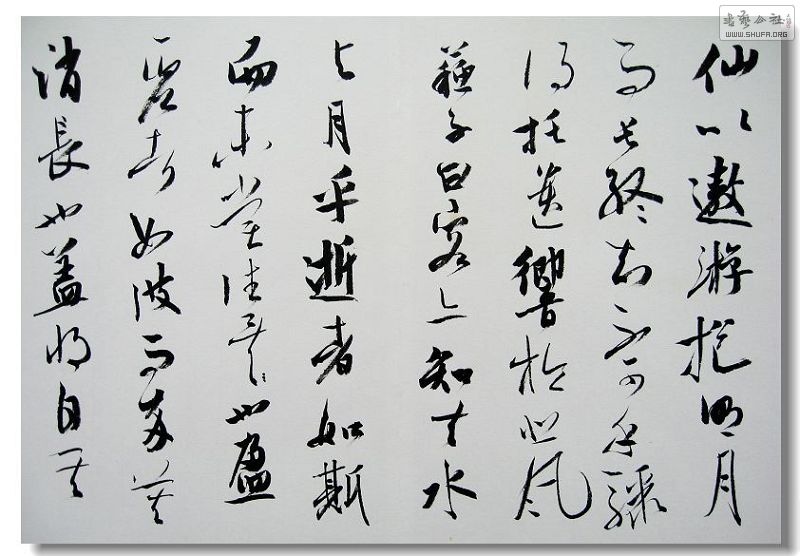 仙以遨游抱明月
而長終知不可乎驟
得托遺響於悲風
蘓子曰客亦知夫水
与月乎逝者如斯
而未嘗往也盈
虚者如彼而卒莫
消長也盖将自其
書藝公社
WWW.SHUFA.ORG